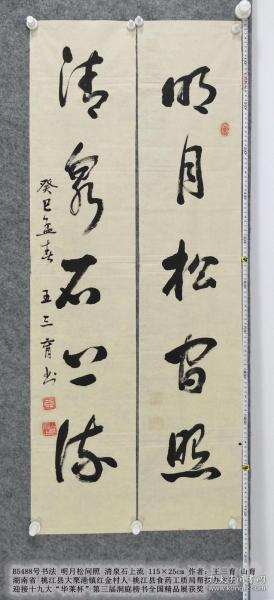 明月松间照
清泉石上流
癸巳孟春 王三育书
85488号书法 明月松间照 清泉石上流 115×25cm 作者：王三育 山育
湖南省 桃江县大栗港镇红金村人 桃江县食药工质局帮扶
迎接十九大“华莱杯”第三届洞庭榜书全国精品展获奖